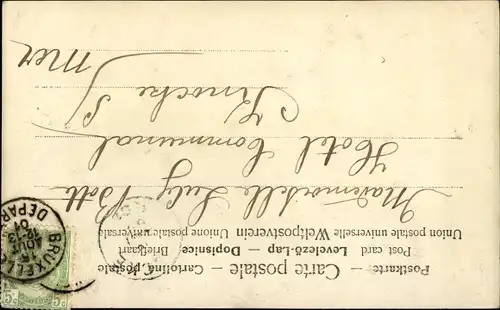 Postkarte — Carte postale — Cartolina postale
Post card — Levelezö-Lap — Dopisnice — Briefkaart
Union postale universelle Weltpostverein Unione postale universale
Mademoiselle Luly Bott
Hotel Communal
Knocke s/
Mer
BRUXELLES
DÉPART
AOUT
5c 5c